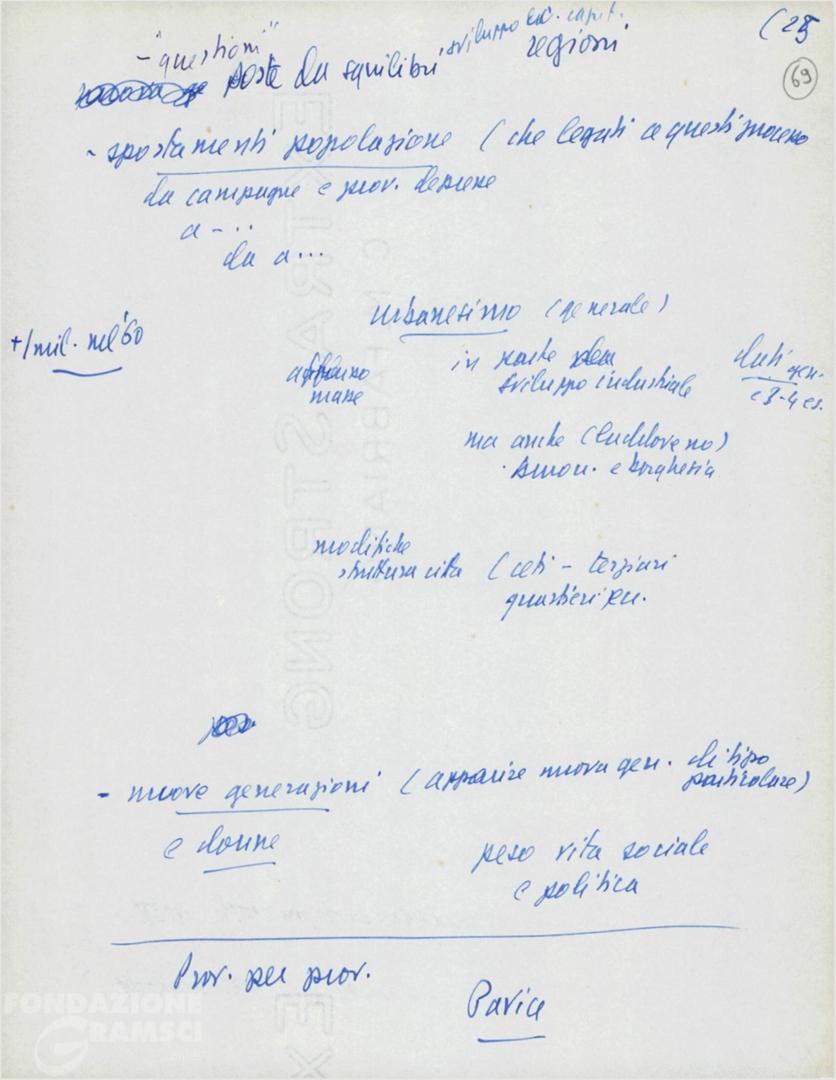 (25
69
- "questioni" poste da squilibri sviluppo ec. capit. regioni
- spostamenti popolazione (che legati a questi processi
da campagne e prov. depresse
a - ..
da a...
urbanesimo (generale)
+1 mil. nel '60
afflusso masse
in parte
sviluppo industriale
dati gen.
e 3-4 es.
ma anche
e borghesia
modifiche
struttura città (ceti - terziari
quartieri
- nuove generazioni (apparire nuova gen. di tipo particolare)
e donne
peso vita sociale
e politica
Prov. per prov.
Pavia
EXTRA STRONG
FONDAZIONE
GRAMSCI